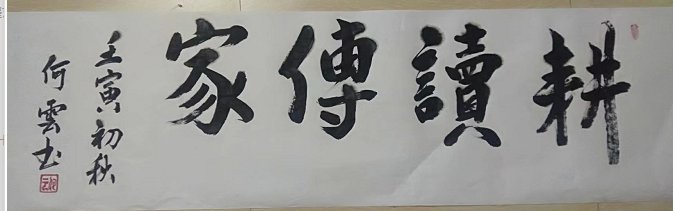 耕讀傳家
壬寅初秋
何雲书